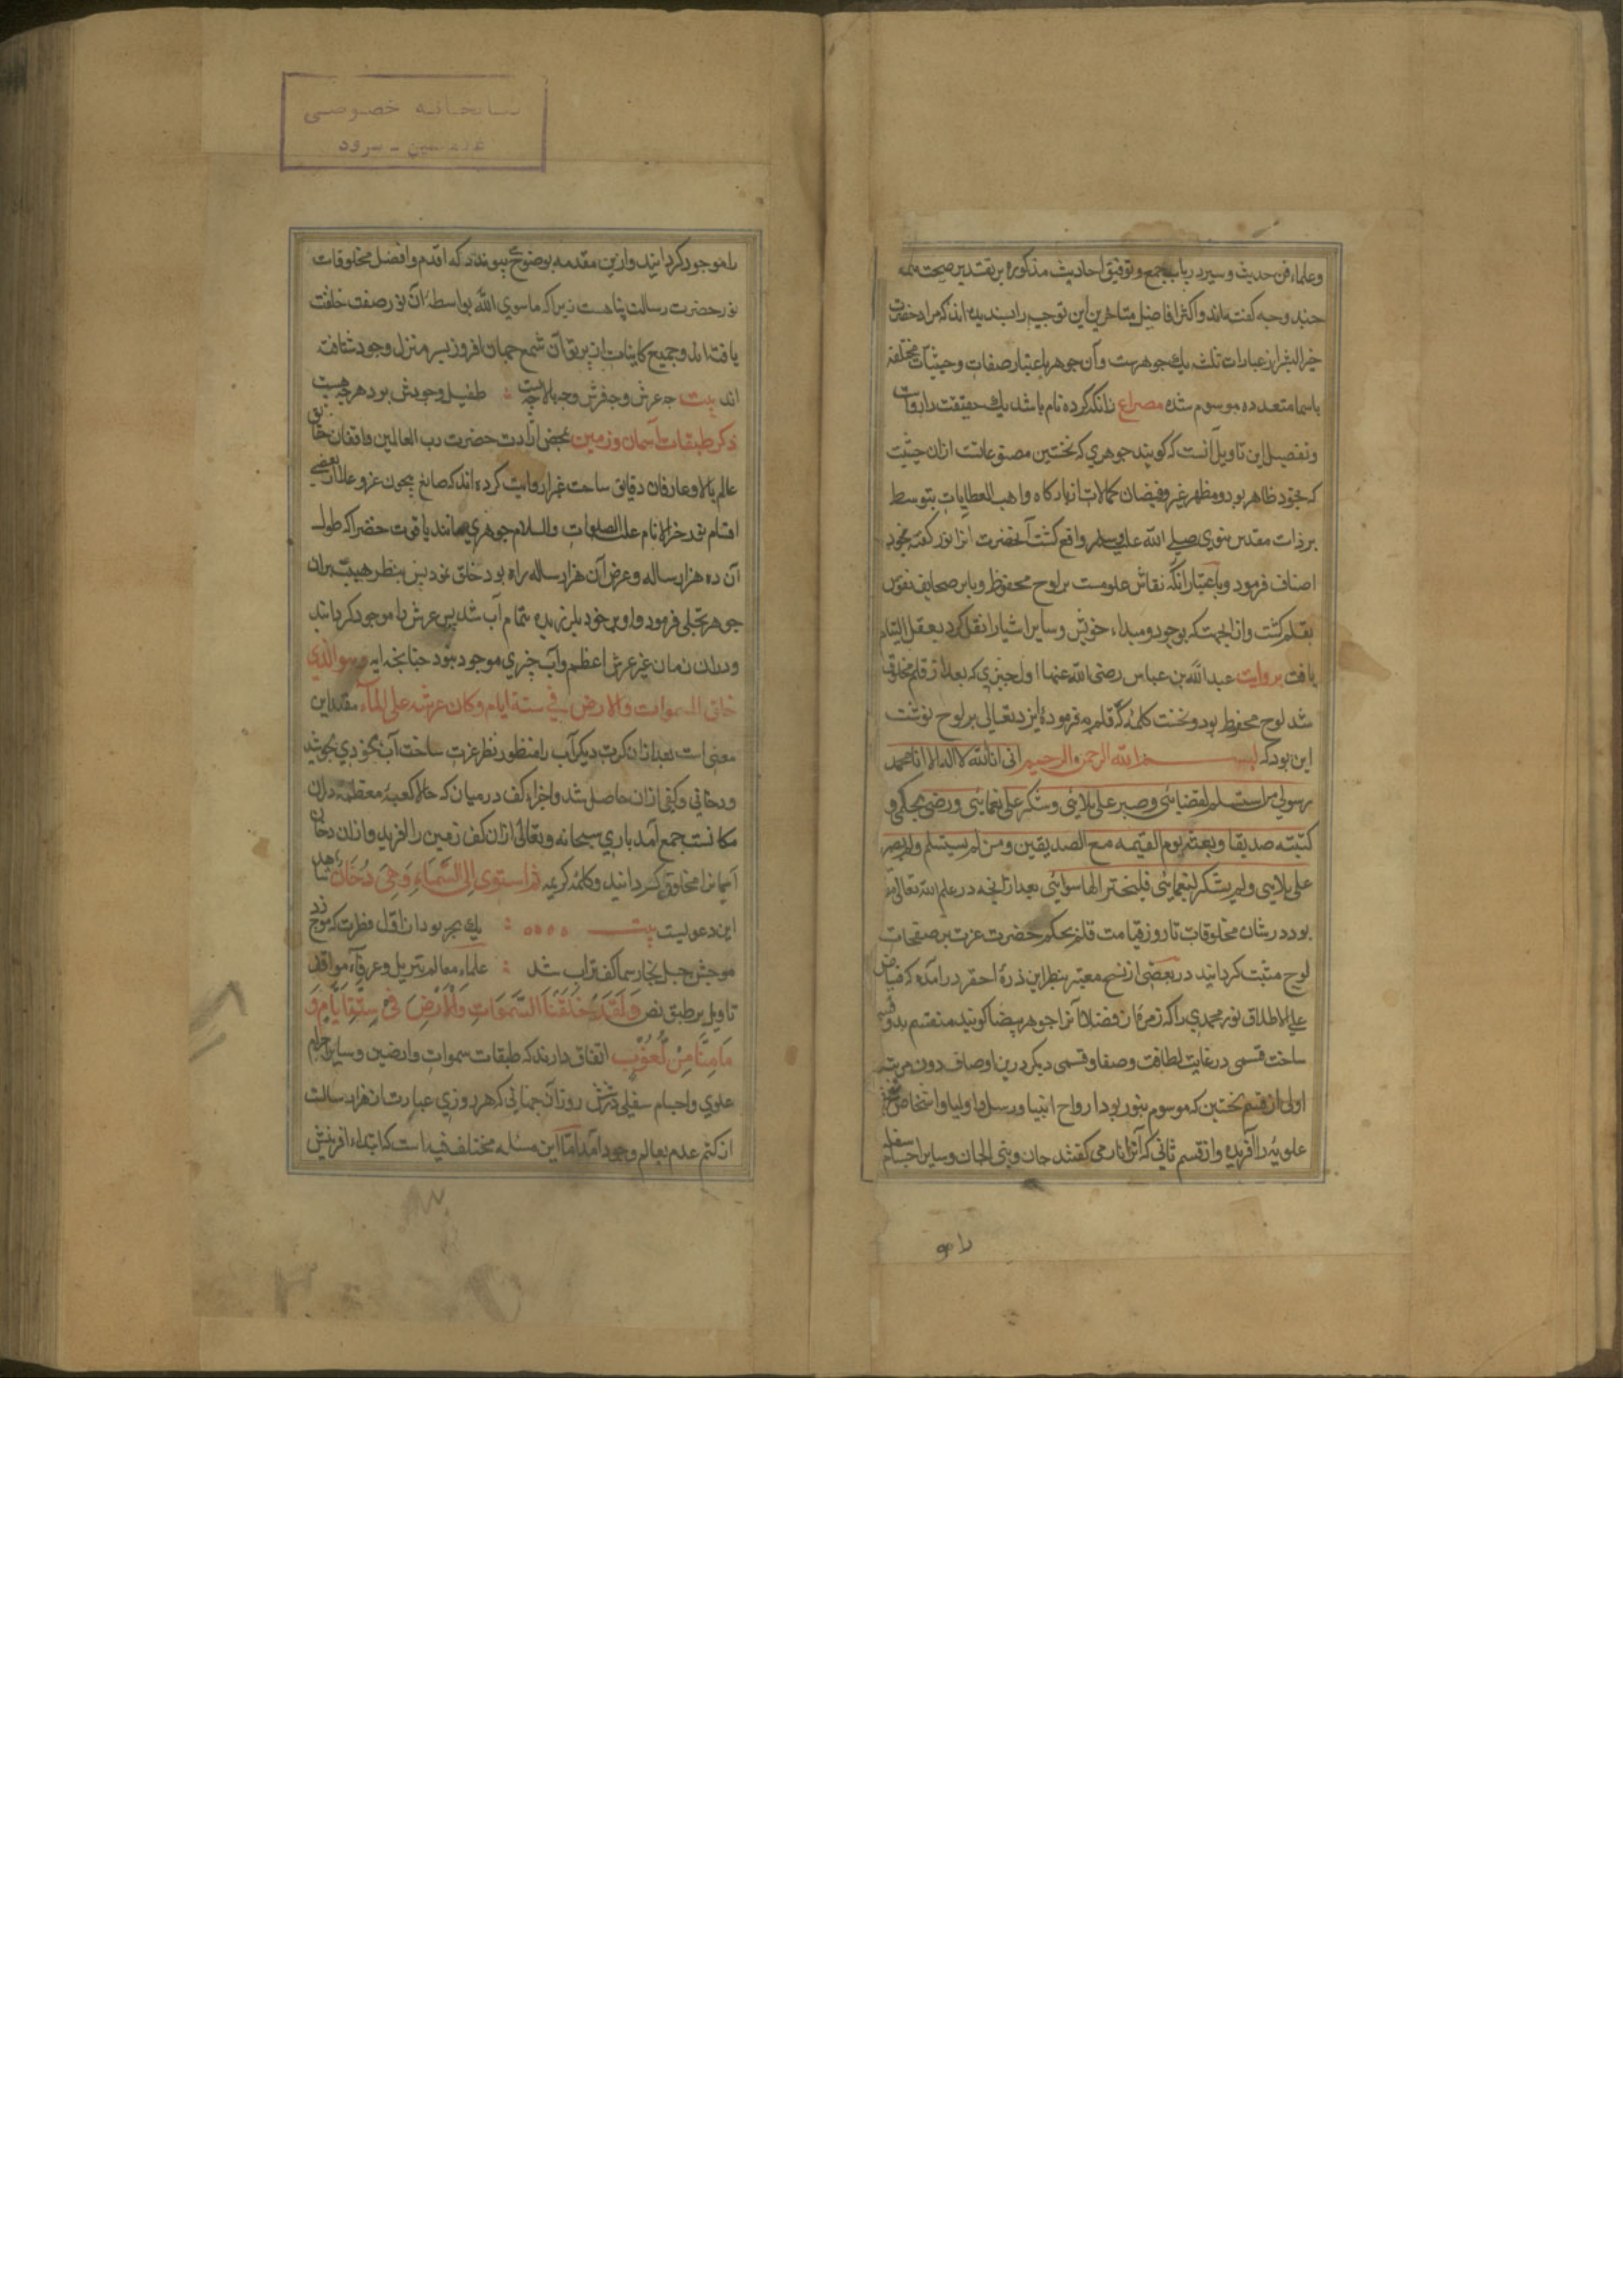 وعلماء فن حدیث و سیر در باب جمع و توفیق احادیث مذکوره بر تقدیر صحت همه
چند وجه کفته‌اند و اکثر افاضل متاخرین این توجیه را پسندیده‌اند که مراد حضرت
خیر البشر از عبارات ثلثه یک جوهرست و آن جوهر باعتبار صفات و حیثیات مختلفه
باسما متعدده موسوم شده مصراع زانکه کرده نام باشد یک حقیقت را
و تفصیل این تاویل آنست که کویند جوهری که نخستین مصنوعاتست ازان حیثیت
که بخود ظاهر بود و مظهر غیر و فیضان کمالات از بارکاه واهب العطایات بتوسط
بر ذات مقدس نبوی صلی الله علیه وسلم واقع کشت آنحضرت انرا نور کفته بخود
اضافت فرمود و باعتبار آنکه نقاش علومست بر لوح محفوظ و یا بر صحایف نفوس
بقلم کشت و ازانجهت که بوجود و مبداء خویش و سایر اشیارا نقل کرد بعقل التیام
یافت بروایت عبدالله بن عباس رضی الله عنهما اول چیزی که بعد از قلم مخلوق
شد لوح محفوظ بود و نخست کلمهٔ که قلم بفرمودهٔ ایزد تعالی بر لوح نوشت
این بود که بسم الله الرحمن الرحیم انی انا الله لا اله الا انا محمد
رسولی من استسلم لقضایئی وصبر علی بلایئی وشکر علی نعمایئی ورضی بحکمی و
کتبته صدیقا وبعثته یوم القیمه مع الصدیقین ومن لم یستسلم ولم یصبر
علی بلایی ولم یشکر لنعمایئی فلیختر الها سوایئی بعد ازان انچه در علم الله تعالی
بود در شان مخلوقات تا روز قیامت قلم بحکم حضرت عزت بر صفحات
لوح مثبت کردانید در بعضی از نسخ معتبر بنظر این ذرهٔ احقر درآمده که فیاض
علی الاطلاق نور محمدی را که زمرهٔ از فضلا آنرا جوهر بیضا کویند منقسم بدو قسم
ساخت قسمی در غایت لطافت و صفا و قسمی دیکر درین اوصاف دون مرتبه
اولی از قسم نخستین که موسوم بنور بود ارواح انبیا و رسل و اولیا و اشخاص
علویه را آفریده و از قسم ثانی که آنرا نار می کفتند جان و بنی الجان و سایر اجسام سفلی
را مو
را موجود کردانید و ازین مقدمه بوضوح پیوندد که اقدم و افضل مخلوقات
نور حضرت رسالت پناهست زیرا که ماسوی الله بواسطهٔ آن نور صفت خلقت
یافته‌اند و جمیع کاینات از پرتو آن شمع جهان افروز بسر منزل وجود شتافته
اند بیت چه عرش و چه فرش و چه بالا چه پست طفیل وجودش بود هر چه هست
ذکر طبقات آسمان و زمین بمحض ارادت حضرت رب العالمین واقفان حقایق
عالم بالا و عارفان دقایق ساحت غبرا روایت کرده اند که صانع بیچون عز و علا از بعضی
اقسام نور خیر الانام علیه الصلوات والسلام جوهری مانند یاقوت خضرا که طول
آن ده هزار ساله و عرض آن هزار ساله راه بود خلق نمود پس بنظر هیبت بران
جوهر تجلی فرمود و او بر خود بلرزیده تمام آب شد پس عرش را موجود کردانید
و دران زمان غیر عرش اعظم و آب چیزی موجود نبود چنانچه ایه وهو الذی
خلق السموات والارض فی ستة ایام وکان عرشه علی المآء مفید این
معنی است بعد ازان کرت دیکر آب را منظور نظر عزت ساخت آب بخودی بجوشید
و دخانی و کفی ازان حاصل شد و اجزاء کف در میان که حالا کعبه معظمه دران
مکانست جمع آمد باری سبحانه و تعالی ازان کف زمین را آفرید و ازان دخان
آسمانرا مخلوق کردانید و کلمه کریمه ثم استوی الی السمآء وهی دخان شاهد
این دعویست بیت یک بحر بود از اول فطرت که موج زد
موجش جبل بخار سما کف تراب شد علماء معالم تنزیل و عرفاء مواقف
تاویل بر طبق نص ولقد خلقنا السموات والارض فی ستة ایام و
ما مسنا من لغوب اتفاق دارند که طبقات سموات و ارضین و سایر اجرام
علوی و اجسام سفلی در شش روز آن جهانی که هر روزی عبارت از هزار سالست
از کتم عدم بعالم وجود آمد اما این مسئله مختلف فیه است که ابتداء افرینش